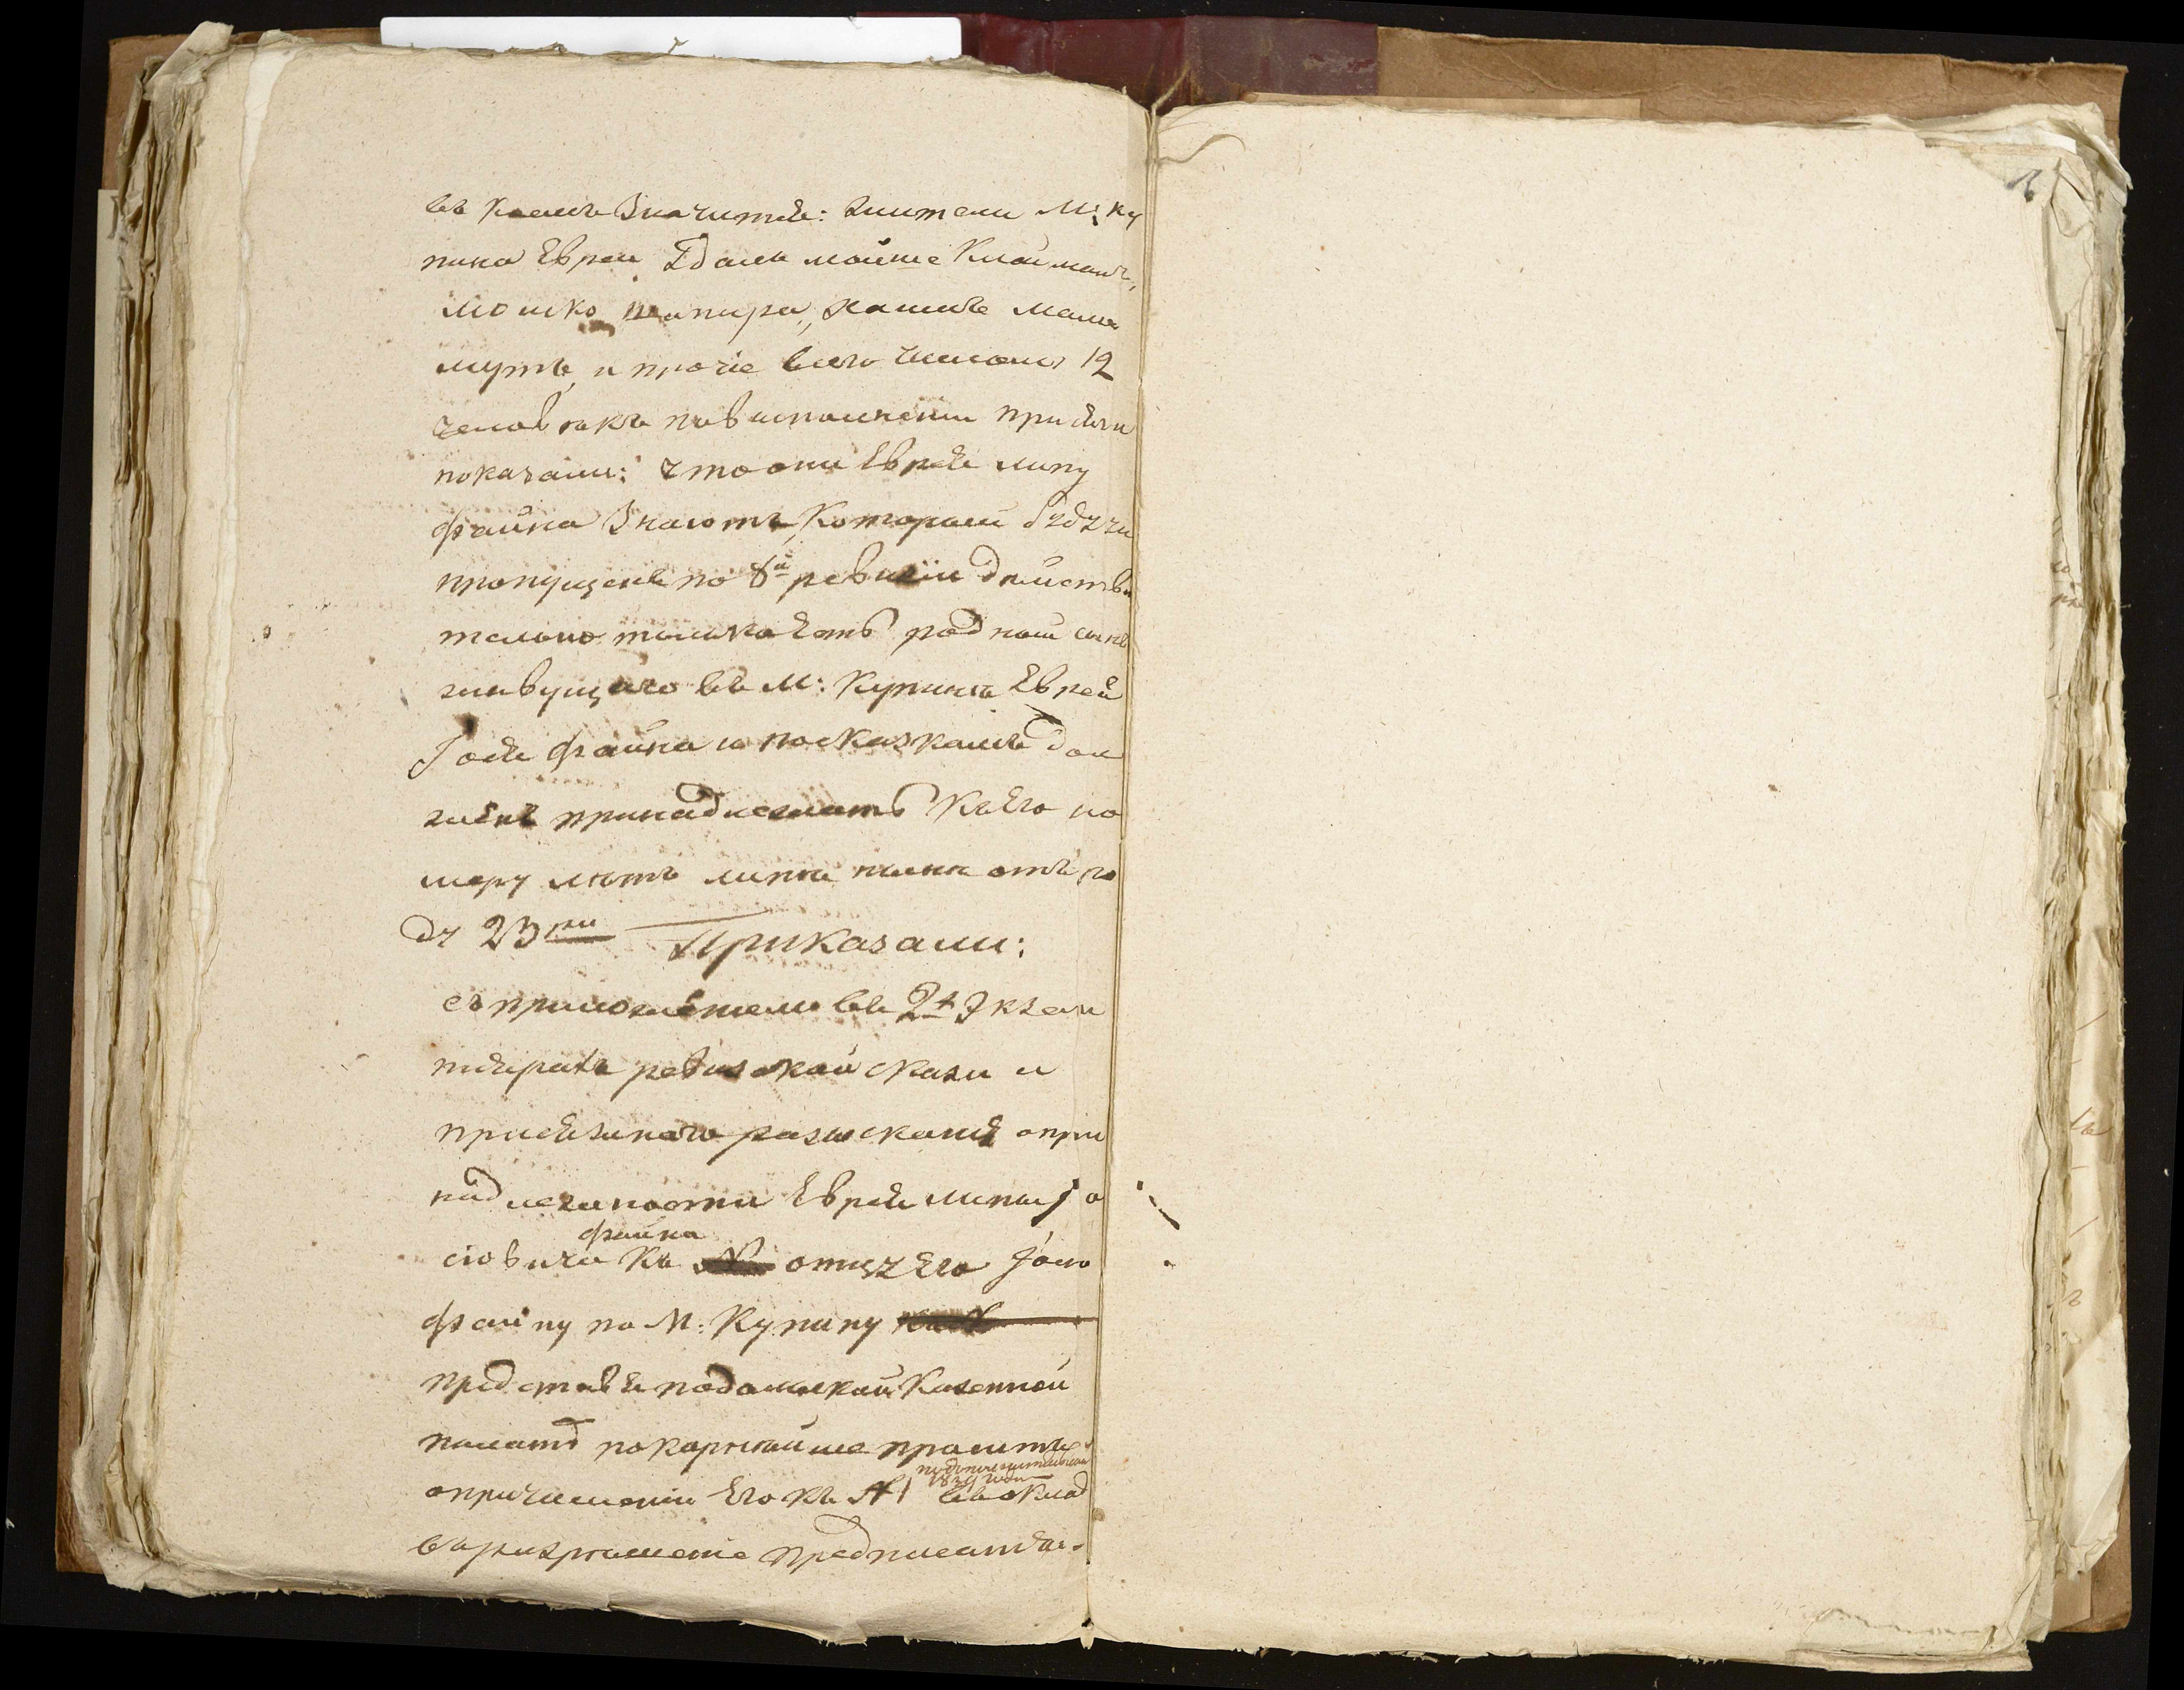 въ коемъ значится: жители м: Ку
пина Евреи Гдаль Мойше Клайманъ,
Мошко Шапира, Хаимъ Мала
мутъ, и прочіе всего числомъ 12
человѣкъ по выполненіи присяги
показали: что они Еврея Липу
Файна знаютъ, который будучи
пропущенъ по 8й ревизіи дѣйстви
тельно только есть родной сынъ
живущаго въ м: Купинѣ Еврея
Іося Файна и по сказкамъ дол
женъ принадлежать къ его но
меру лѣтъ Липѣ нынѣ отъ ро
ду 23 Приказали:
съ приложеніемъ въ 2х Экзем
плярахъ ревизской сказки и
присяжнаго разысканія о при
надлежности Еврея Липы Іо
сіовича Файна къ отцу Его Іосю
Файну по М: Купину
представя Подольской Казенной
Палатѣ покорнѣйше просить
о причисленіи Его къ № 1 1839 года въ окладъ
въ разрѣшеніе предписанія.